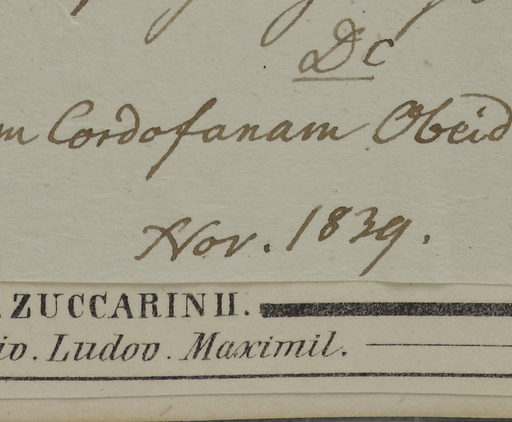 Dc
m Cordofanam Obeid
Nov. 1839.
. ZUCCARINII.
iv. Ludov. Maximil.